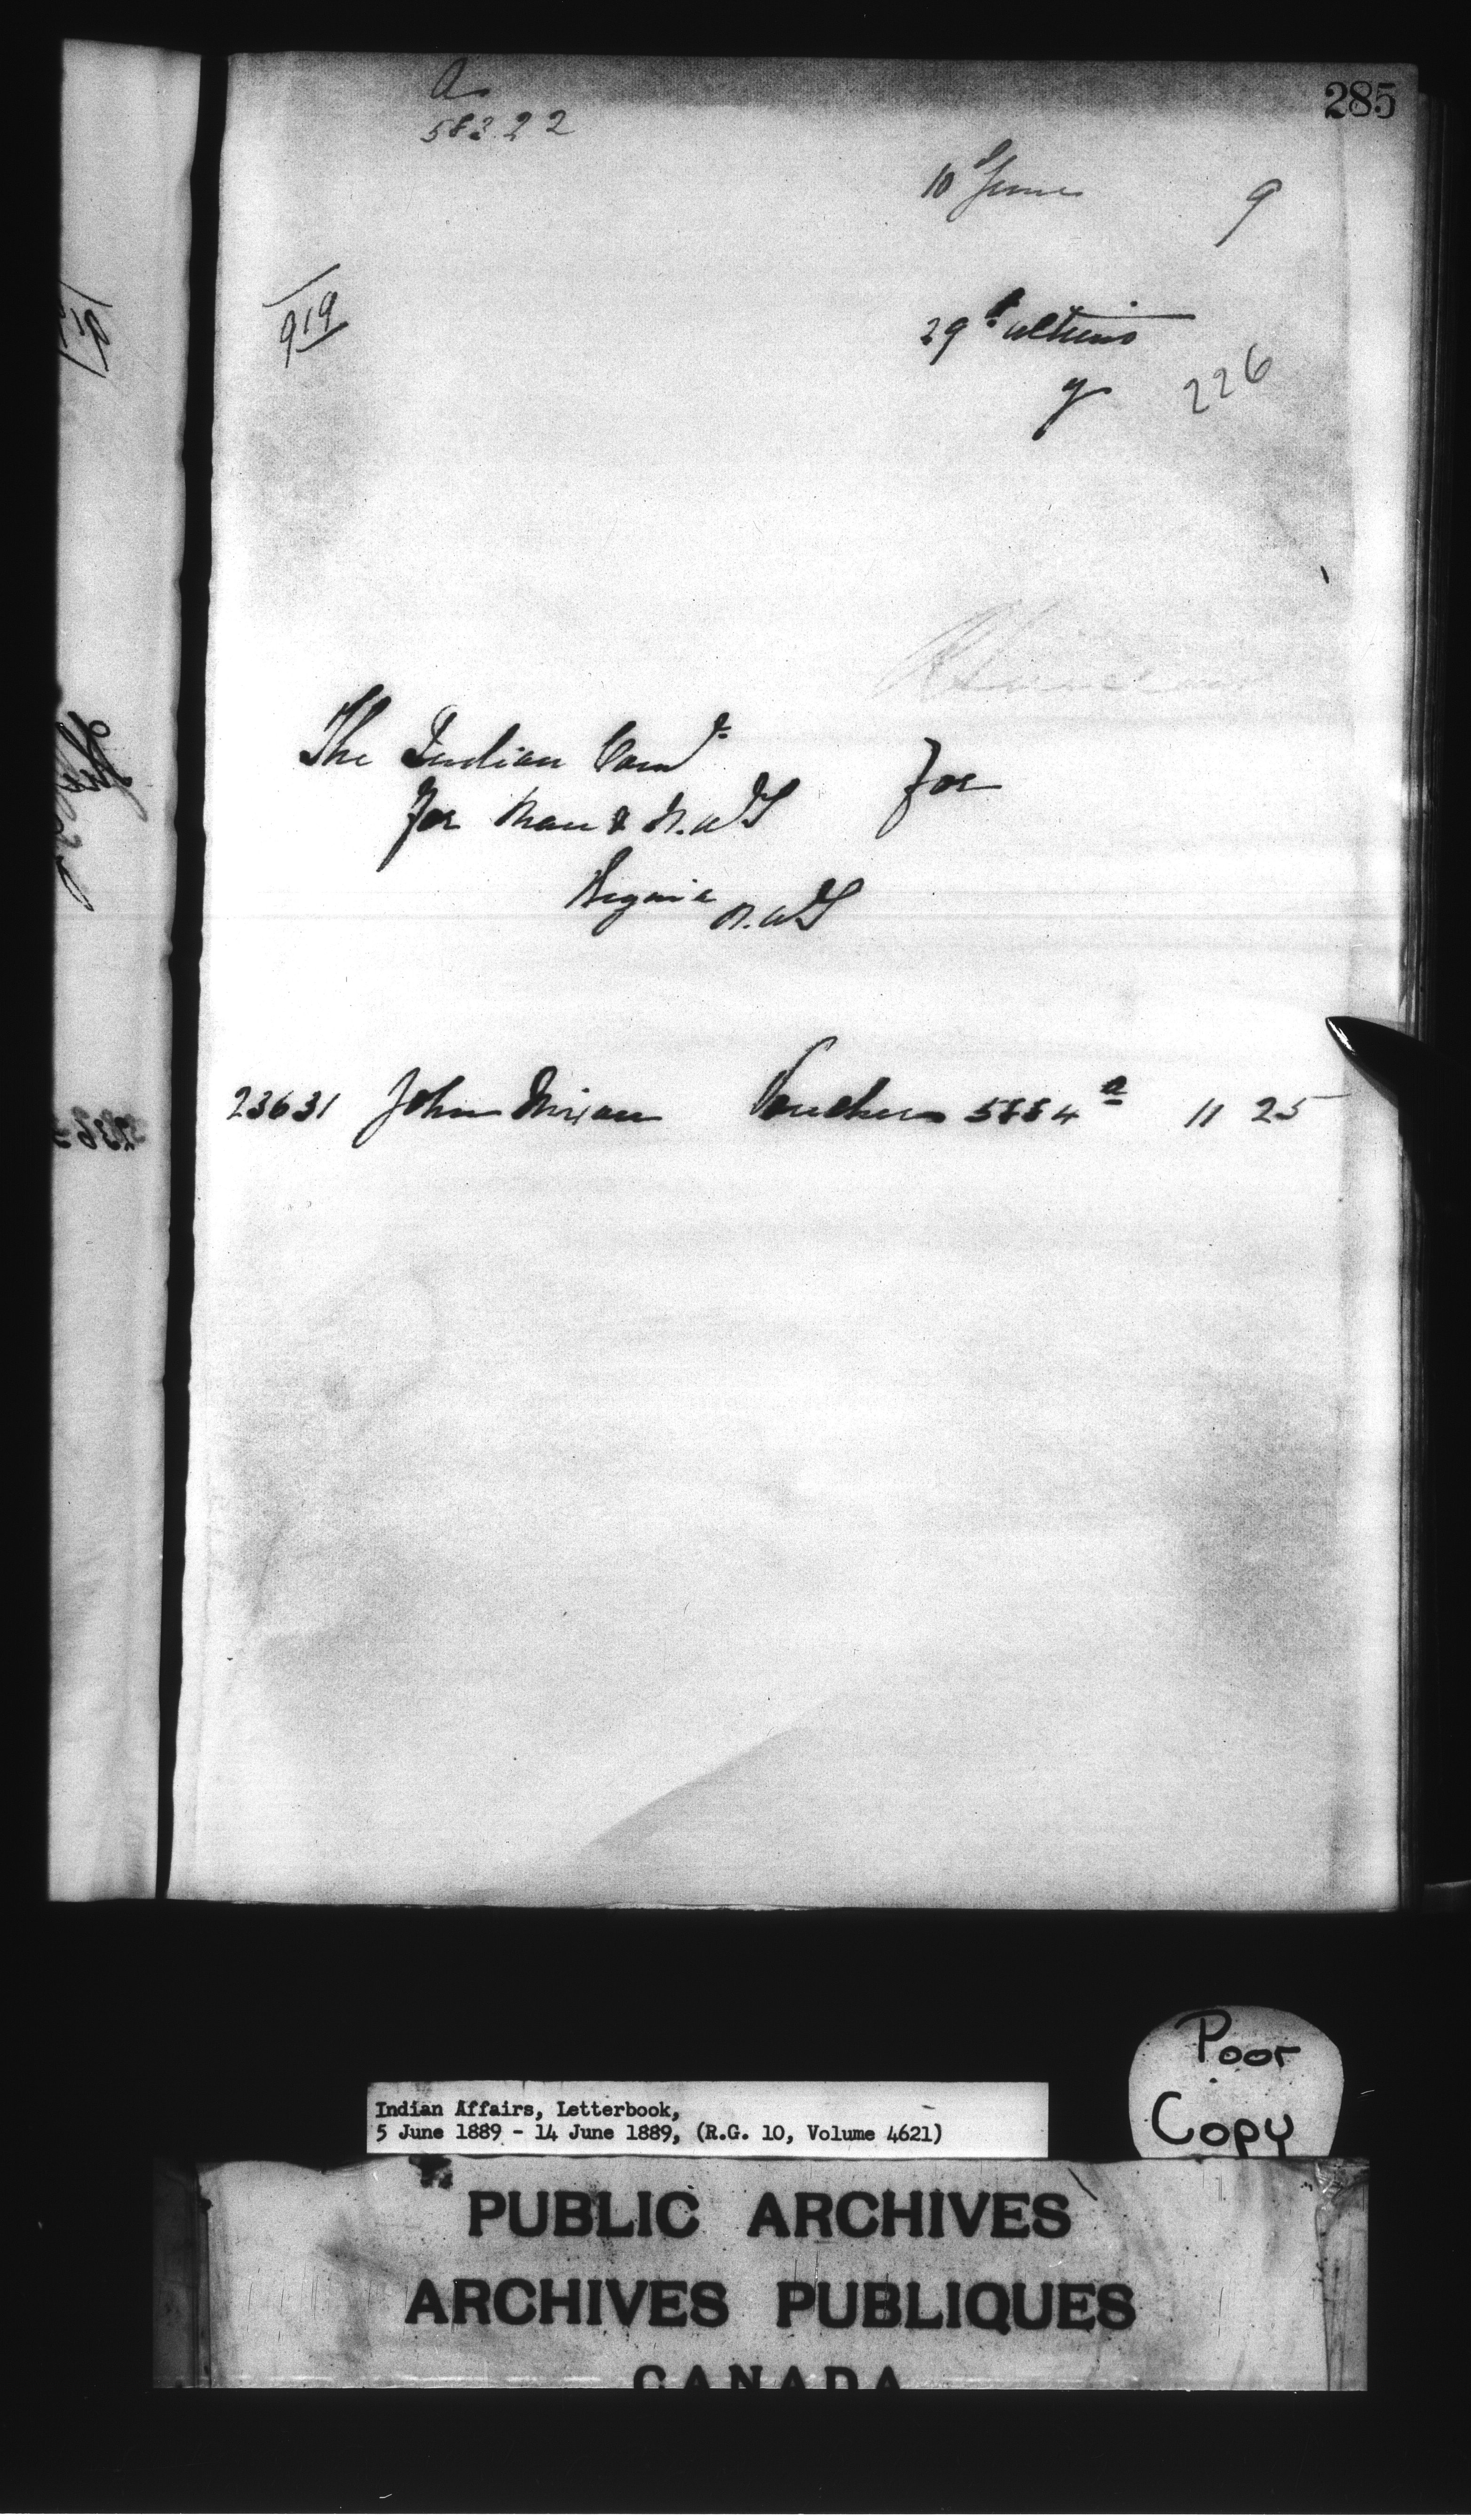 285
a
58322
10th June 9
919
29th ultimo
y 226
The Indian Comr
for Man & N.W.T for
Regina N.W.T
23631 John Dixon Vouchers 5854a 11 25
Poor
Copy
Indian Affairs, Letterbook,
5 June 1889 - 14 June 1889, (R.G. 10, Volume 4621)
PUBLIC ARCHIVES
ARCHIVES PUBLIQUES
CANADA